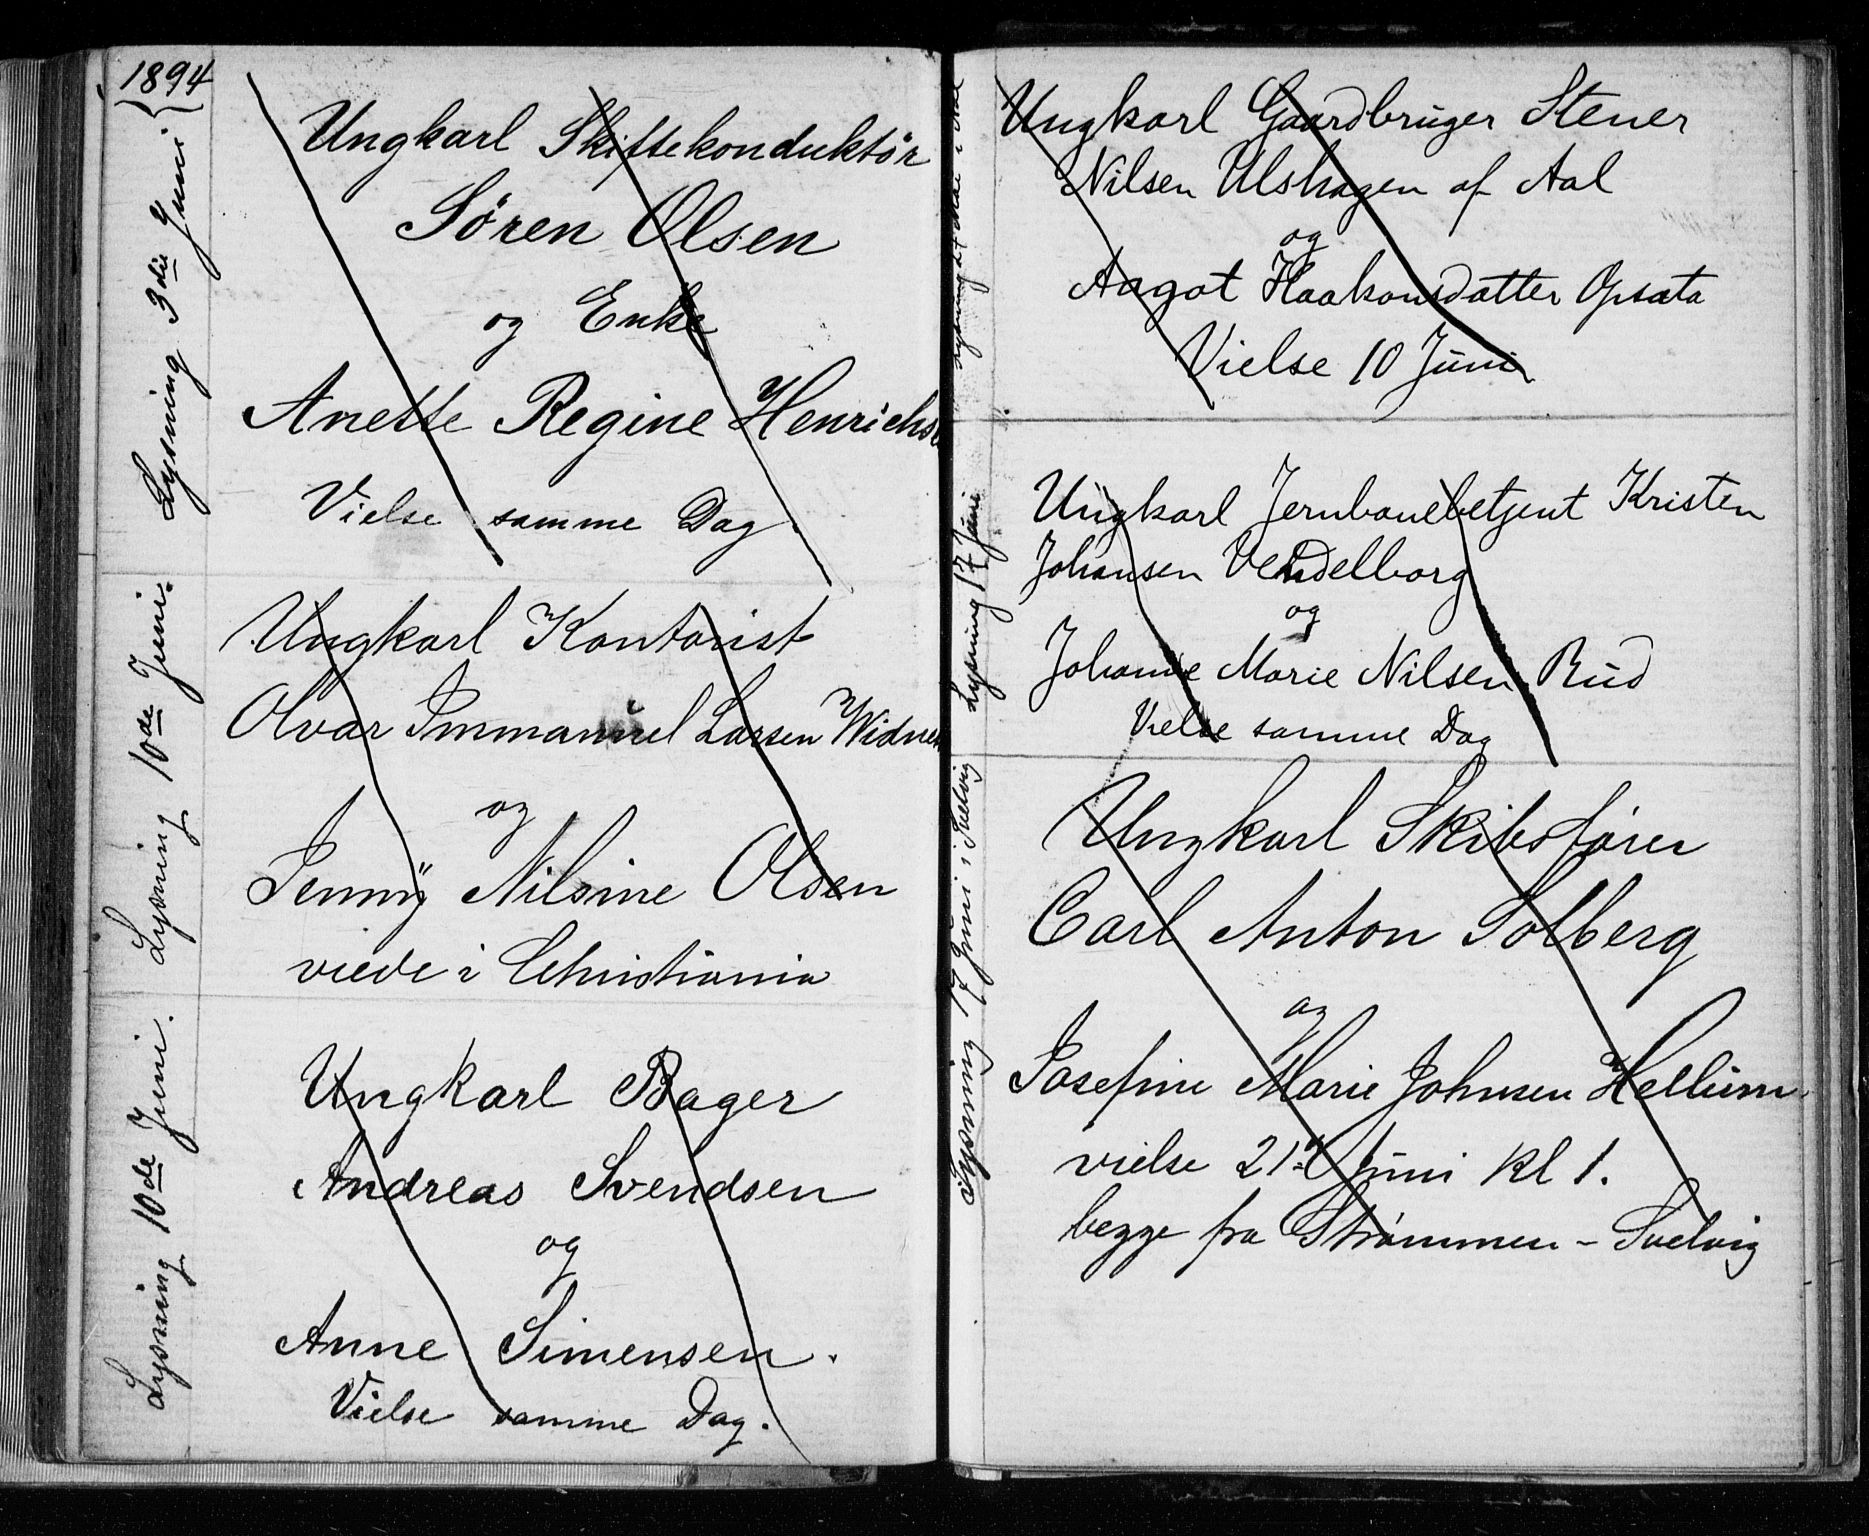 1894
Lysning 3die Juni
Ungkarl Skiftekonduktör
Sören Olsen
og Enke
Anette Regine Henrichs
Vielse samme Dag.
Lysning 10de Juni.
Ungkarl Kontorist
Olvar Immanuel Larsen Widnes
og
Jenny Nilsine Olsen
viede i Christiania
Lysning 10de Juni.
Ungkarl Bager
Andreas Svendsen
og
Anne Simensen.
Vielse samme Dag.
Ungkarl Gaardbruger Stener
Nilsen Ulshagen af Aal
og
Aagot Haakonsdatter Opsata
Vielse 10 Juni
Lysning 17 Juni
Ungkarl Jernbanebetjent Kristen
Johansen Vendelborg
og
Johanne Marie Nilsen Rud
Vielse samme Dag
Lysning 17 Juni i Svelvig
Ungkarl Skibsfører
Carl Anton Solberg
og
Josefine Marie Johnsen Hellum
vielse 21. Juni kl 1.
begge fra Strømmen - Svelvig